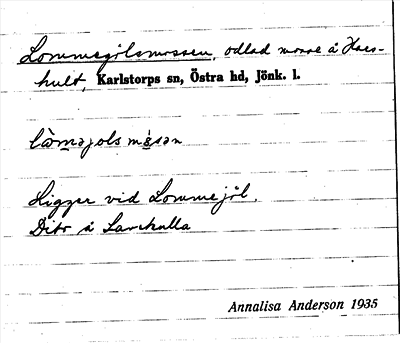 Lommegölsmossen, odlad mosse å Hars-
hult, Karlstorps sn, Östra hd, Jönk. l.
Ligger vid Lommejöl.
Dito å Larskulla
Annalisa Anderson 1935